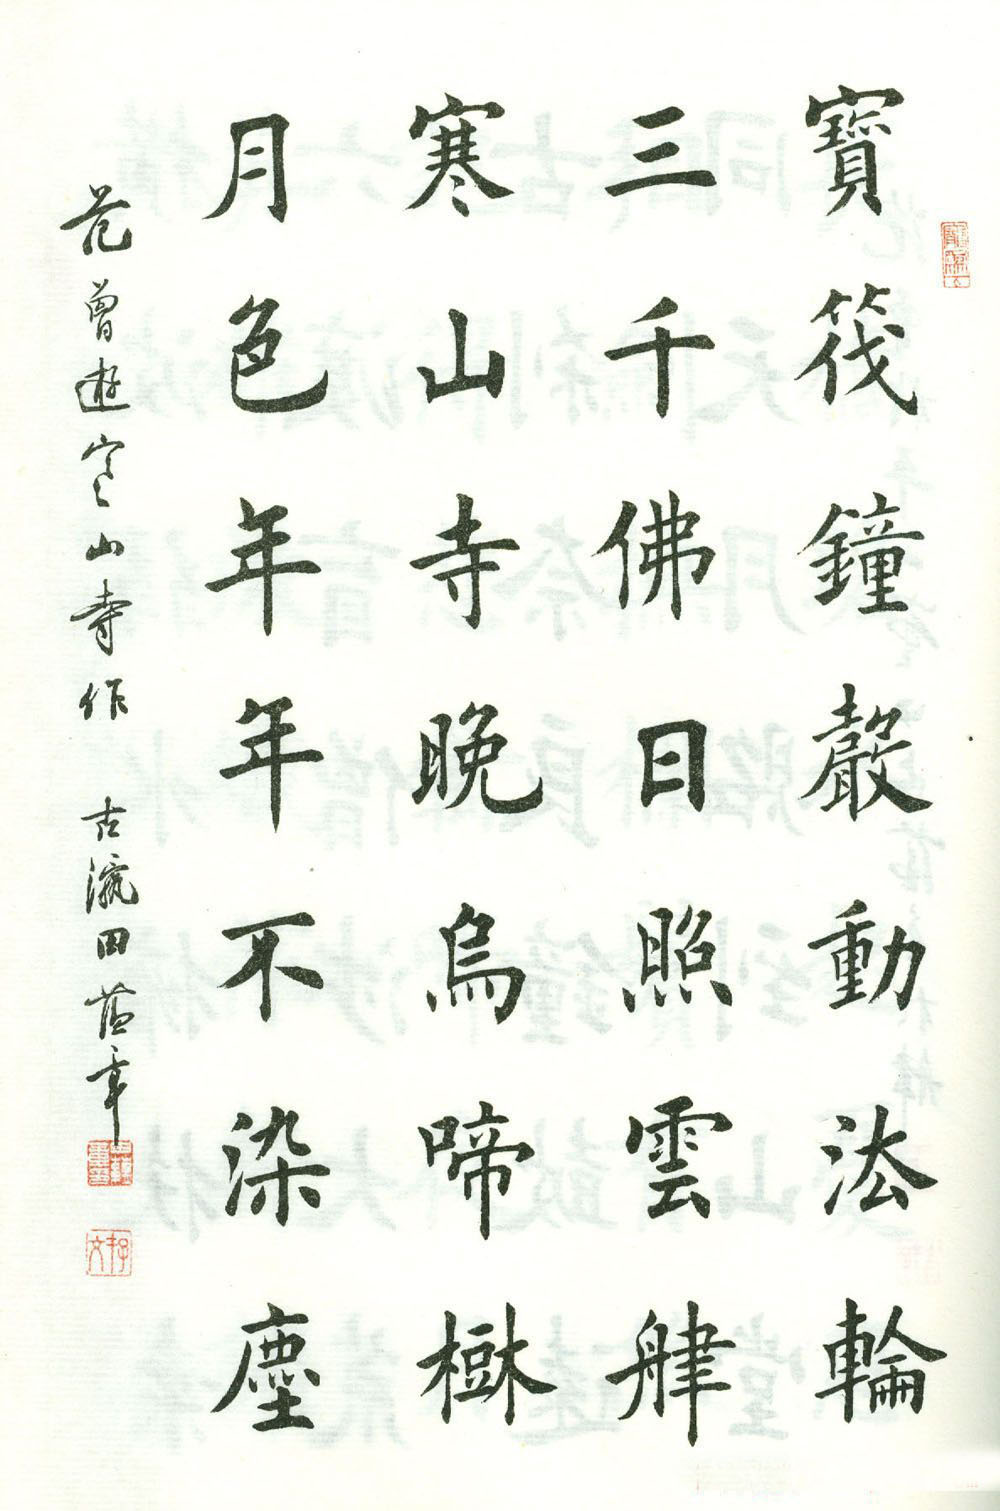 寶筏鐘聲動法輪
三千佛日照雲津
寒山寺晚烏啼樹
月色年年不染塵
范曾遊寒山寺作 古瀛田蘊章